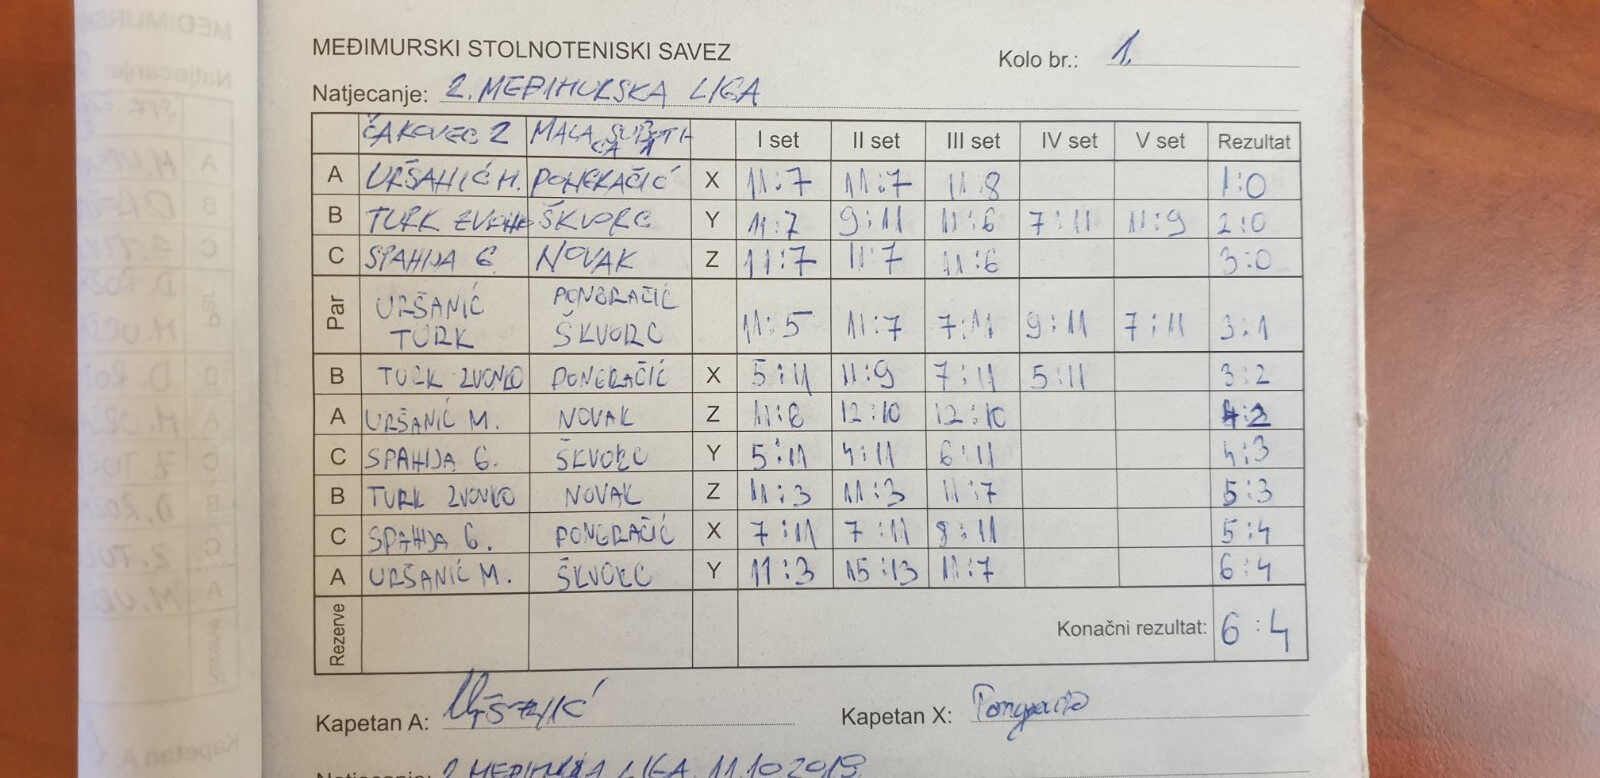 MEĐIMURSKI STOLNOTENISKI SAVEZ
Kolo br.: 1.
Natjecanje: 2. MEĐIMURSKA LIGA
ČAKOVEC 2 MALA SUBOTICA I set II set III set IV set V set Rezultat
A URŠANIĆ M. PONGRAČIĆ X 11:7 11:7 11:8 1:0
B TURK ZVONKO ŠKVORC Y 11:7 9:11 11:6 7:11 11:9 2:0
C SPAHIJA G. NOVAK Z 11:7 11:7 11:6 3:0
Par URŠANIĆ TURK PONGRAČIĆ ŠKVORC 11:5 11:7 7:11 9:11 7:11 3:1
B TURK ZVONKO PONGRAČIĆ X 5:11 11:9 7:11 5:11 3:2
A URŠANIĆ M. NOVAK Z 11:8 12:10 12:10 4:2
C SPAHIJA G. ŠKVORC Y 5:11 4:11 6:11 4:3
B TURK ZVONKO NOVAK Z 11:3 11:3 11:7 5:3
C SPAHIJA G. PONGRAČIĆ X 7:11 7:11 8:11 5:4
A URŠANIĆ M. ŠKVORC Y 11:3 15:13 11:7 6:4
Rezerve Konačni rezultat: 6:4
Kapetan A: Uršanić
Kapetan X: Pongračić
Natjecanje: 2. MEĐIMURSKA LIGA 11.10.2019.